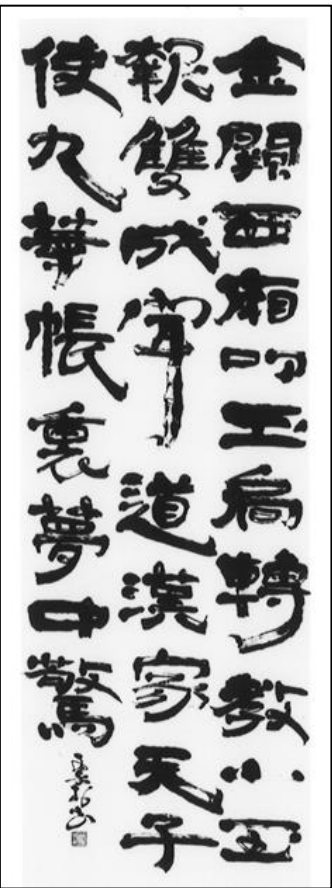 金闕西廂叩玉扃轉教小玉
報雙成聞道漢家天子
使九華帳裏夢中驚